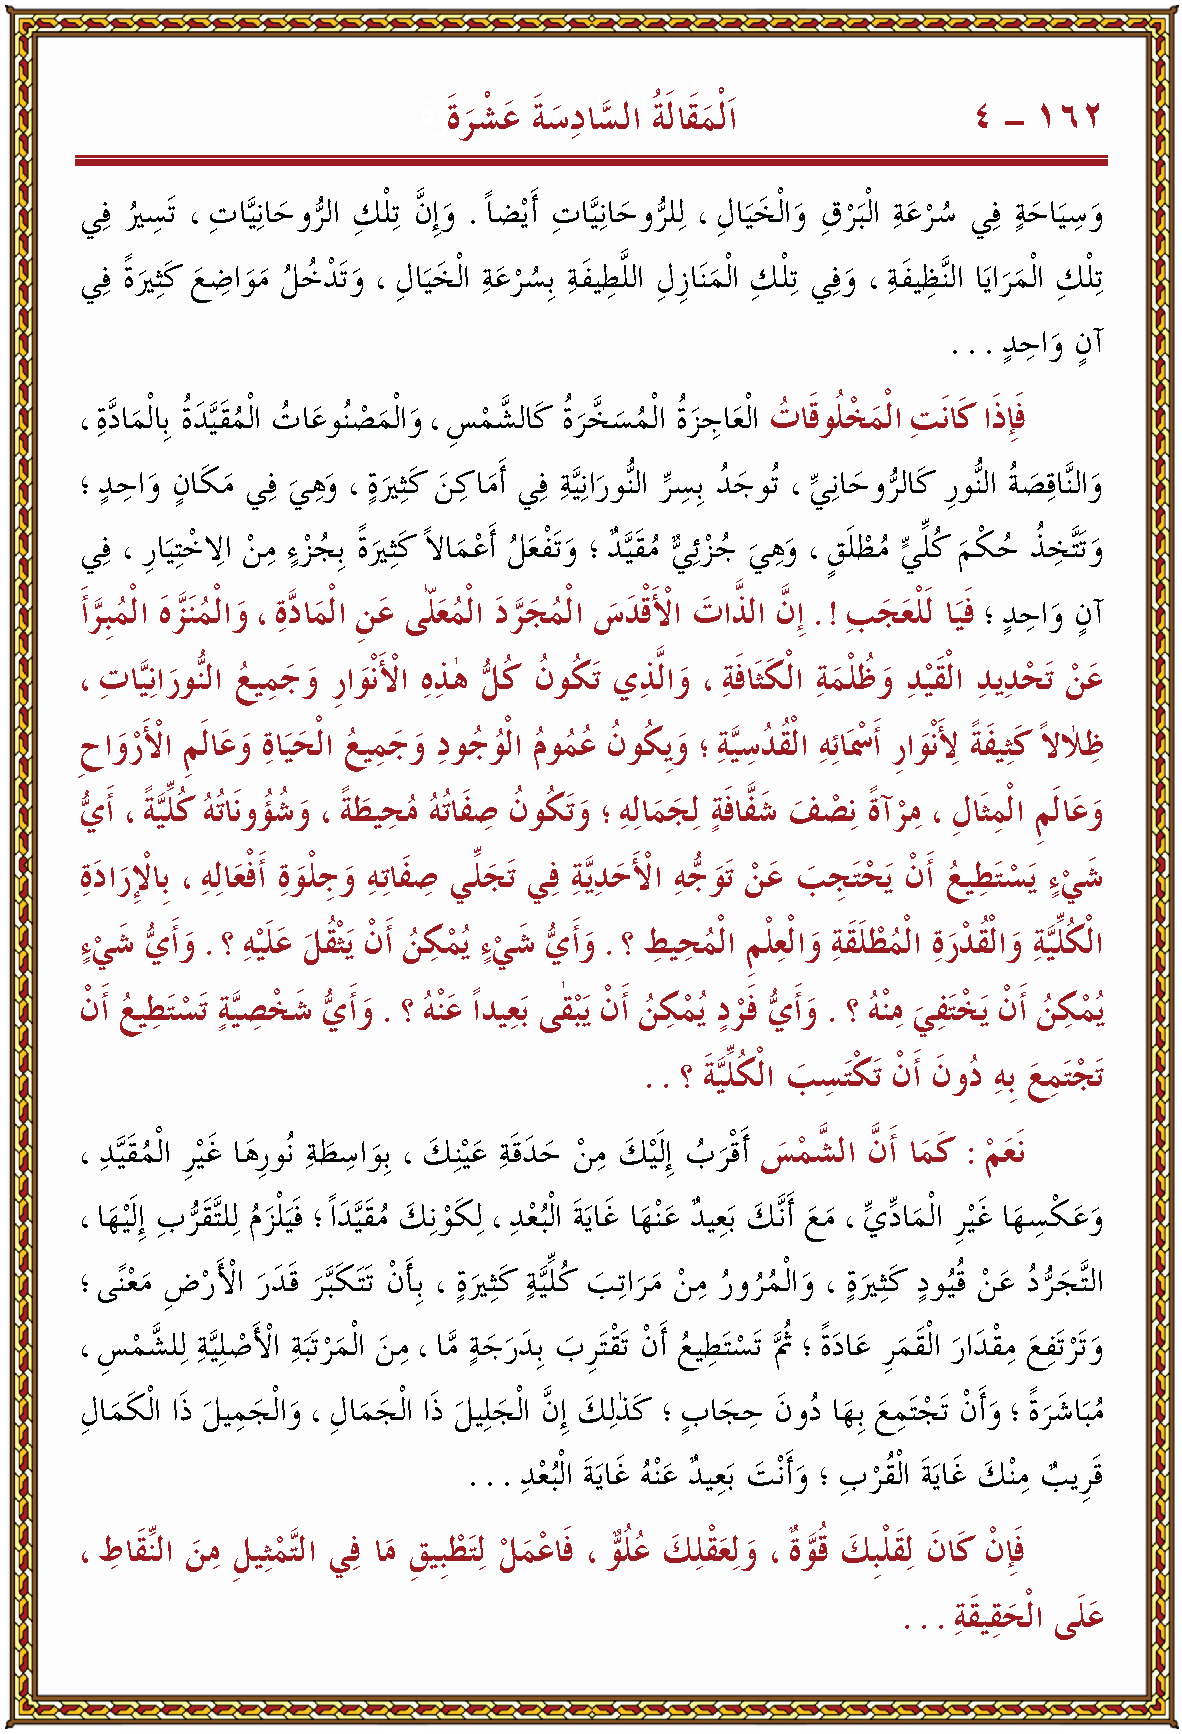 ١٦٢ – ٤ اَلْمَقَالَةُ السَّادِسَةَ عَشْرَةَ
وَسِيَاحَةٍ فِي سُرْعَةِ الْبَرْقِ وَالْخَيَالِ ، لِلرُّوحَانِيَّاتِ أَيْضاً . وَإِنَّ تِلْكِ الرُّوحَانِيَّاتِ ، تَسِيرُ فِي
تِلْكِ الْمَرَايَا النَّظِيفَةِ ، وَفِي تِلْكِ الْمَنَازِلِ اللَّطِيفَةِ بِسُرْعَةِ الْخَيَالِ ، وَتَدْخُلُ مَوَاضِعَ كَثِيرَةً فِي
آنٍ وَاحِدٍ . . .
فَإِذَا كَانَتِ الْمَخْلُوقَاتُ الْعَاجِزَةُ الْمُسَخَّرَةُ كَالشَّمْسِ ، وَالْمَصْنُوعَاتُ الْمُقَيَّدَةُ بِالْمَادَّةِ ،
وَالنَّاقِصَةُ النُّورِ كَالرُّوحَانِيِّ ، تُوجَدُ بِسِرِّ النُّورَانِيَّةِ فِي أَمَاكِنَ كَثِيرَةٍ ، وَهِيَ فِي مَكَانٍ وَاحِدٍ ؛
وَتَتَّخِذُ حُكْمَ كُلِّيٍّ مُطْلَقٍ ، وَهِيَ جُزْئِيٌّ مُقَيَّدٌ ؛ وَتَفْعَلُ أَعْمَالاً كَثِيرَةً بِجُزْءٍ مِنْ الِاخْتِيَارِ ، فِي
آنٍ وَاحِدٍ ؛ فَيَا لَلْعَجَبِ ! . إِنَّ الذَّاتَ الْأَقْدَسَ الْمُجَرَّدَ الْمُعَلّٰى عَنِ الْمَادَّةِ ، وَالْمُنَزَّهَ الْمُبَرَّأَ
عَنْ تَحْدِيدِ الْقَيْدِ وَظُلْمَةِ الْكَثَافَةِ ، وَالَّذِي تَكُونُ كُلُّ هٰذِهِ الْأَنْوَارِ وَجَمِيعُ النُّورَانِيَّاتِ ،
ظِلَالاً كَثِيفَةً لِأَنْوَارِ أَسْمَائِهِ الْقُدُسِيَّةِ ؛ وَيَكُونُ عُمُومُ الْوُجُودِ وَجَمِيعُ الْحَيَاةِ وَعَالَمِ الْأَرْوَاحِ
وَعَالَمِ الْمِثَالِ ، مِرْآةً نِصْفَ شَفَّافَةٍ لِجَمَالِهِ ؛ وَتَكُونُ صِفَاتُهُ مُحِيطَةً ، وَشُؤُونَاتُهُ كُلِّيَّةً ، أَيُّ
شَيْءٍ يَسْتَطِيعُ أَنْ يَحْتَجِبَ عَنْ تَوَجُّهِ الْأَحَدِيَّةِ فِي تَجَلِّي صِفَاتِهِ وَجِلْوَةِ أَفْعَالِهِ ، بِالْإِرَادَةِ
الْكُلِّيَّةِ وَالْقُدْرَةِ الْمُطْلَقَةِ وَالْعِلْمِ الْمُحِيطِ ؟ . وَأَيُّ شَيْءٍ يُمْكِنُ أَنْ يَثْقُلَ عَلَيْهِ ؟ . وَأَيُّ شَيْءٍ
يُمْكِنُ أَنْ يَخْتَفِيَ مِنْهُ ؟ . وَأَيُّ فَرْدٍ يُمْكِنُ أَنْ يَبْقٰى بَعِيداً عَنْهُ ؟ . وَأَيُّ شَخْصِيَّةٍ تَسْتَطِيعُ أَنْ
تَجْتَمِعَ بِهِ دُونَ أَنْ تَكْتَسِبَ الْكُلِّيَّةَ ؟ . .
نَعَمْ : كَمَا أَنَّ الشَّمْسَ أَقْرَبُ إِلَيْكَ مِنْ حَدَقَةِ عَيْنِكَ ، بِوَاسِطَةِ نُورِهَا غَيْرِ الْمُقَيَّدِ ،
وَعَكْسِهَا غَيْرِ الْمَادِّيِّ ، مَعَ أَنَّكَ بَعِيدٌ عَنْهَا غَايَةَ الْبُعْدِ ، لِكَوْنِكَ مُقَيَّداً ؛ فَيَلْزَمُ لِلتَّقَرُّبِ إِلَيْهَا ،
التَّجَرُّدُ عَنْ قُيُودٍ كَثِيرَةٍ ، وَالْمُرُورُ مِنْ مَرَاتِبَ كُلِّيَّةٍ كَثِيرَةٍ ، بِأَنْ تَتَكَبَّرَ قَدَرَ الْأَرْضِ مَعْنًى ؛
وَتَرْتَفِعَ مِقْدَارَ الْقَمَرِ عَادَةً ؛ ثُمَّ تَسْتَطِيعُ أَنْ تَقْتَرِبَ بِدَرَجَةٍ مَّا ، مِنَ الْمَرْتَبَةِ الْأَصْلِيَّةِ لِلشَّمْسِ ،
مُبَاشَرَةً ؛ وَأَنْ تَجْتَمِعَ بِهَا دُونَ حِجَابٍ ؛ كَذٰلِكَ إِنَّ الْجَلِيلَ ذَا الْجَمَالِ ، وَالْجَمِيلَ ذَا الْكَمَالِ
قَرِيبٌ مِنْكَ غَايَةَ الْقُرْبِ ؛ وَأَنْتَ بَعِيدٌ عَنْهُ غَايَةَ الْبُعْدِ . . .
فَإِنْ كَانَ لِقَلْبِكَ قُوَّةٌ ، وَلِعَقْلِكَ عُلُوٌّ ، فَاعْمَلْ لِتَطْبِيقِ مَا فِي التَّمْثِيلِ مِنَ النِّقَاطِ ،
عَلَى الْحَقِيقَةِ . . .